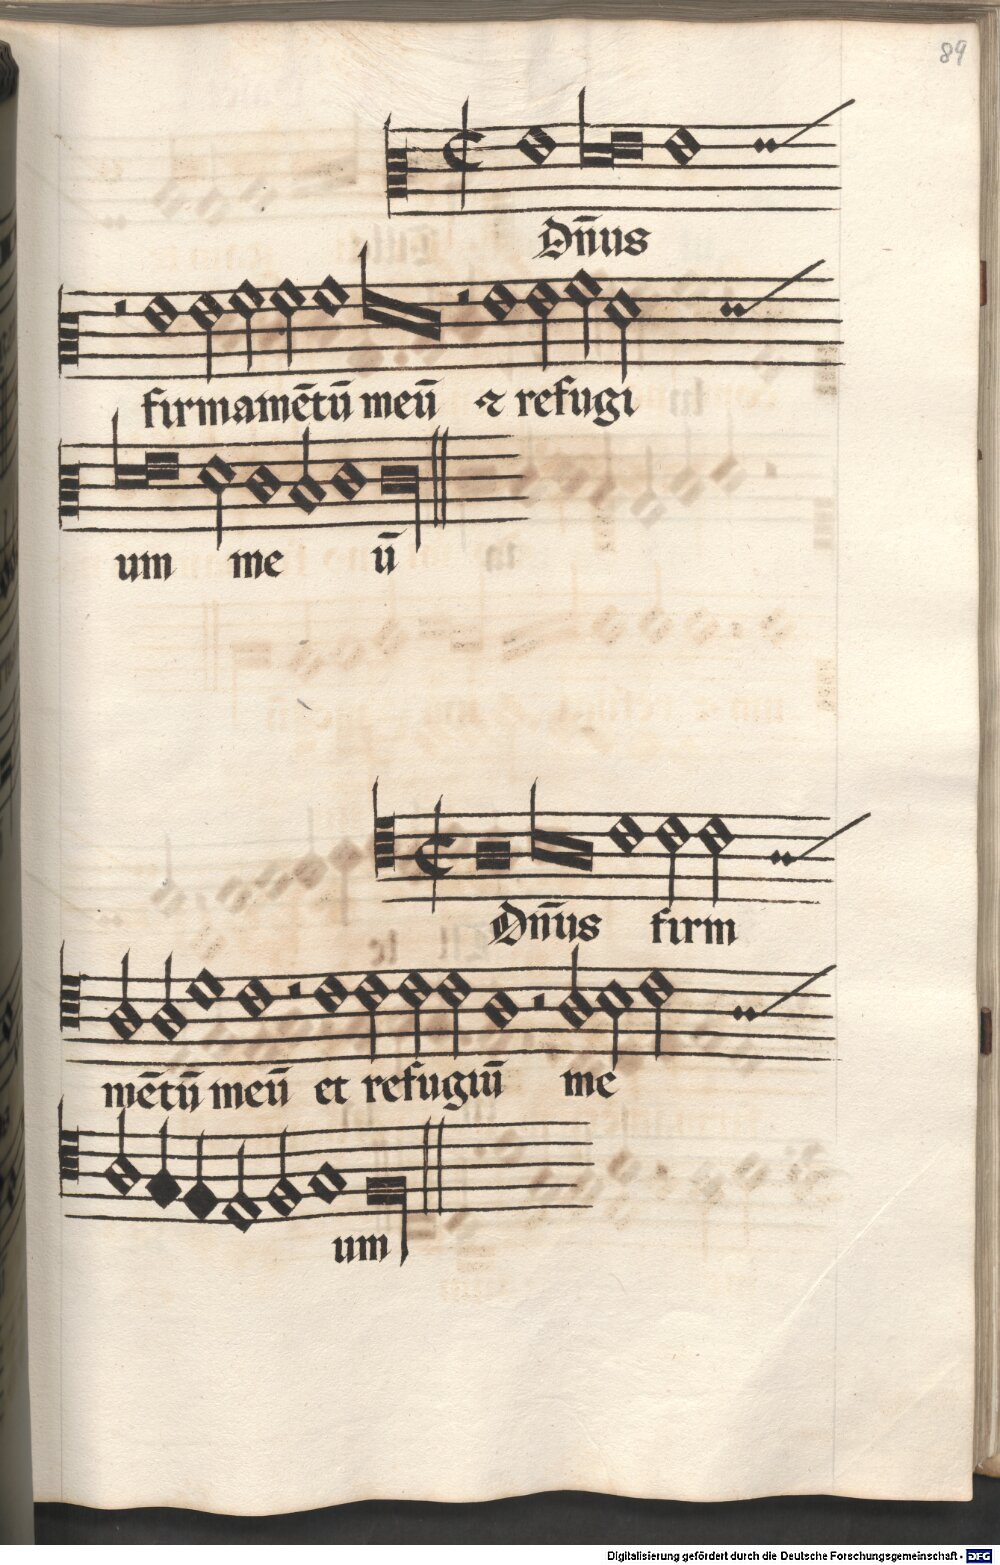 89
Dn̄us
firmamētū meū ⁊ refugi
um me ū
Dn̄us firm
mētū meū et refugiū me
um
Digitalisierung gefördert durch die Deutsche Forschungsgemeinschaft - DFG